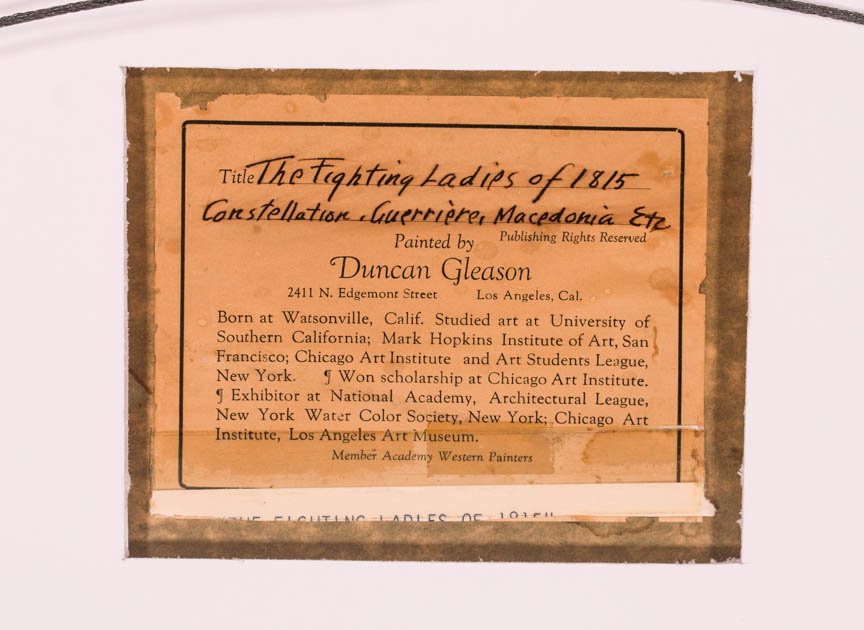 Title The Fighting Ladies of 1815
Constellation, Guerrière, Macedonia Etc
Publishing Rights Reserved
Painted by
Duncan Gleason
2411 N. Edgemont Street Los Angeles, Cal.
Born at Watsonville, Calif. Studied art at University of
Southern California; Mark Hopkins Institute of Art, San
Francisco; Chicago Art Institute and Art Students League,
New York. ¶ Won scholarship at Chicago Art Institute.
¶ Exhibitor at National Academy, Architectural League,
New York Water Color Society, New York; Chicago Art
Institute, Los Angeles Art Museum.
Member Academy Western Painters
THE FIGHTING LADIES OF 1815"